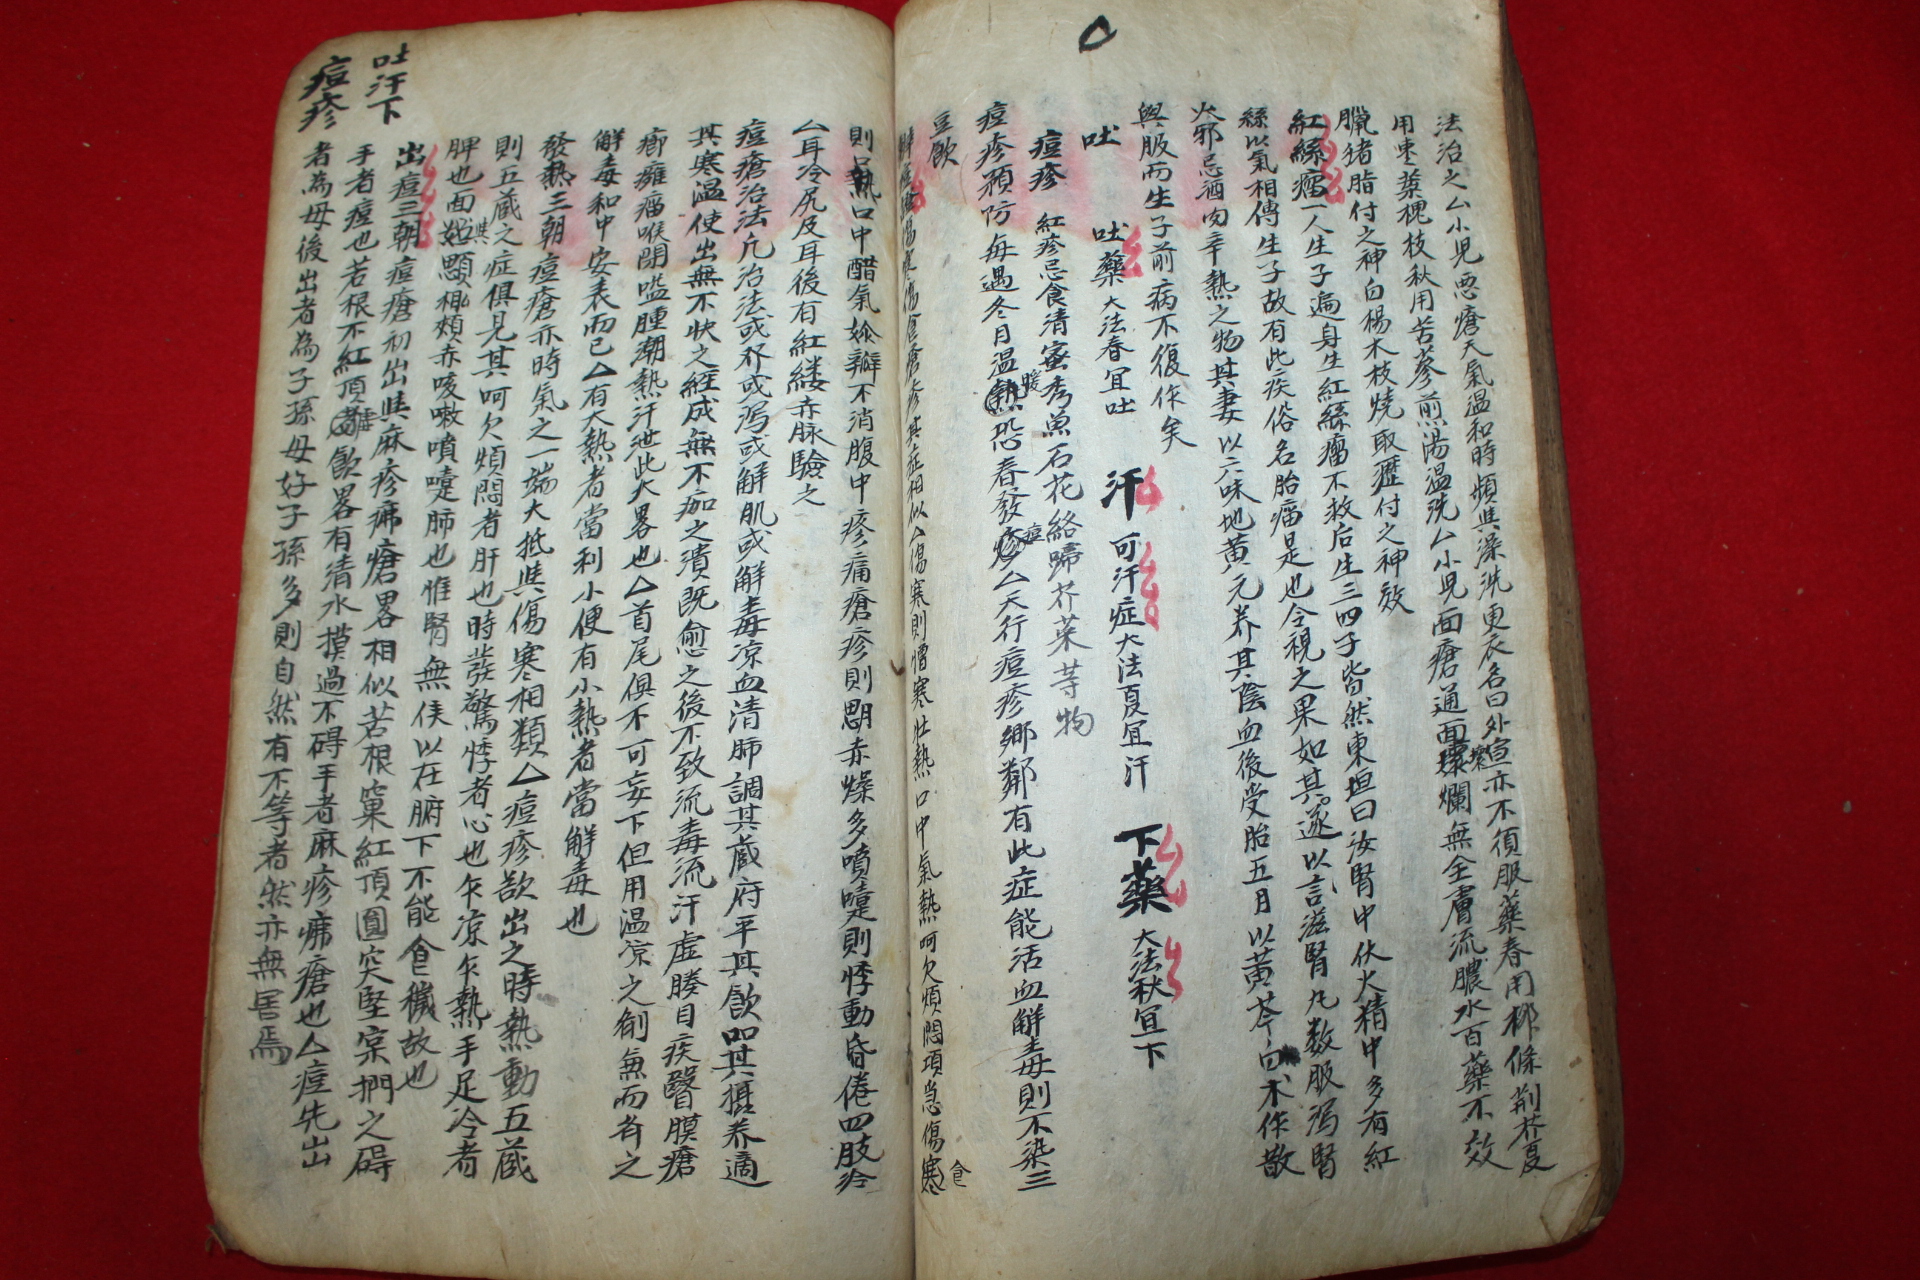 法治之厶小児悪瘡天氣温和時頻與澡洗更衣名曰外宣亦不須服藥春用柳條荊芥夏
用枣葉槐枝秋用苦蔘煎湯温洗厶小児面瘡通面爛無全膚流膿水百藥不效
臘猪脂付之神白楊木枝燒取瀝付之神效
紅絲瘤一人生子遍身生紅絲瘤不救后生三四子皆然東垣曰汝腎中伏火精中多有紅
絲以氣相傳生子故有此疾俗名胎瘤是也令視之果如其遂以言滋腎丸数服瀉腎
火邪忌酒肉辛熱之物其妻以六味地黄元养其陰血後受胎五月以黄芩白朮作散
與服而生子前病不復作矣
吐 吐藥 大法春宜吐 汗 可汗症大法夏宜汗 下藥 大法秋宜下
痘疹 紅疹忌食清蜜秀魚石花絡蹄芥菜等物
痘疹預防每遇冬月温暖恐春發痘疹厶天行痘疹郷鄰有此症能活血解毒則不染三
豆飲
傷寒傷食瘡疹其症相似厶傷寒則憎寒壮熱口中氣熱呵欠煩悶項急傷食
則熱口中醋氣妳瓣不消腹中疼痛瘡疹則腮赤燥多噴嚏則悸動昏倦四肢冷
厶耳冷尻及耳後有紅縷赤脉驗之
痘瘡治法凡治法或發或瀉或解肌或解毒凉血清肺調其蔵府平其飲㗖其攝养適
其寒温使出無不快之經成無不痂之潰既愈之後不致流毒流汗虚勝目疾翳膜瘡
癤癰瘤喉閉嗌腫潮熱汗泄此大畧也厶首尾俱不可妄下但用温凉之劑兼而有之
解毒和中安表而已厶有大熱者當利小便有小熱者當解毒也
發熱三朝 痘瘡亦時氣之一端大抵與傷寒相類厶痘疹欲出之時熱動五蔵
則五蔵之症俱見其呵欠煩悶者肝也時發驚悸者心也乍凉乍熱手足冷者
脾也面顋頰赤咳嗽噴嚏肺也惟腎無侯以在腑下不能食穢故也
出痘三朝 痘瘡初出與麻疹疿瘡畧相似苦根窠紅頂圓突堅実捫之碍
手者痘也若根不紅頂畧有清水摸過不碍手者麻疹疿瘡也厶痘先出
者為母後出者為子孫母好子孫多則自然有不等者然亦無害焉
吐汗下
痘疹